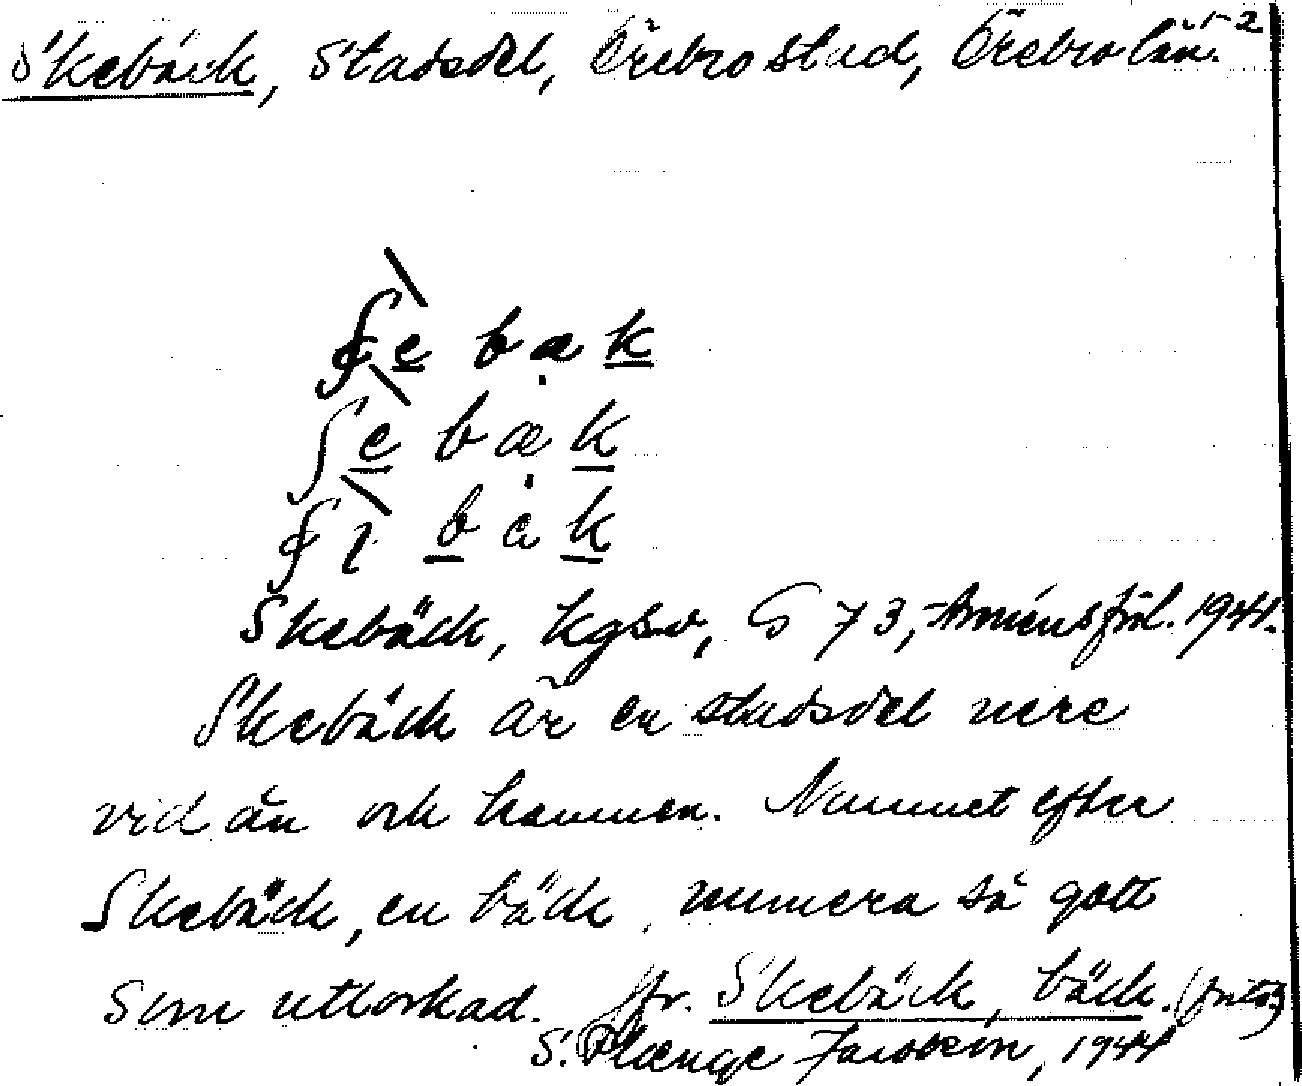 Skebäck, Stadsdel, Örebro stad, Örebro län. 1-2
ʃe bæk
ʃe bæk
Skebäck, kgsv, G 73, 1944.
Skebäck är en stadsdel nere
vid ån och hamnen. Namnet efter
Skebäck, en bäck, numera så gott
som uttorkad. Jfr. Skebäck, bäck.
S. Plænge Jacobson, 1944